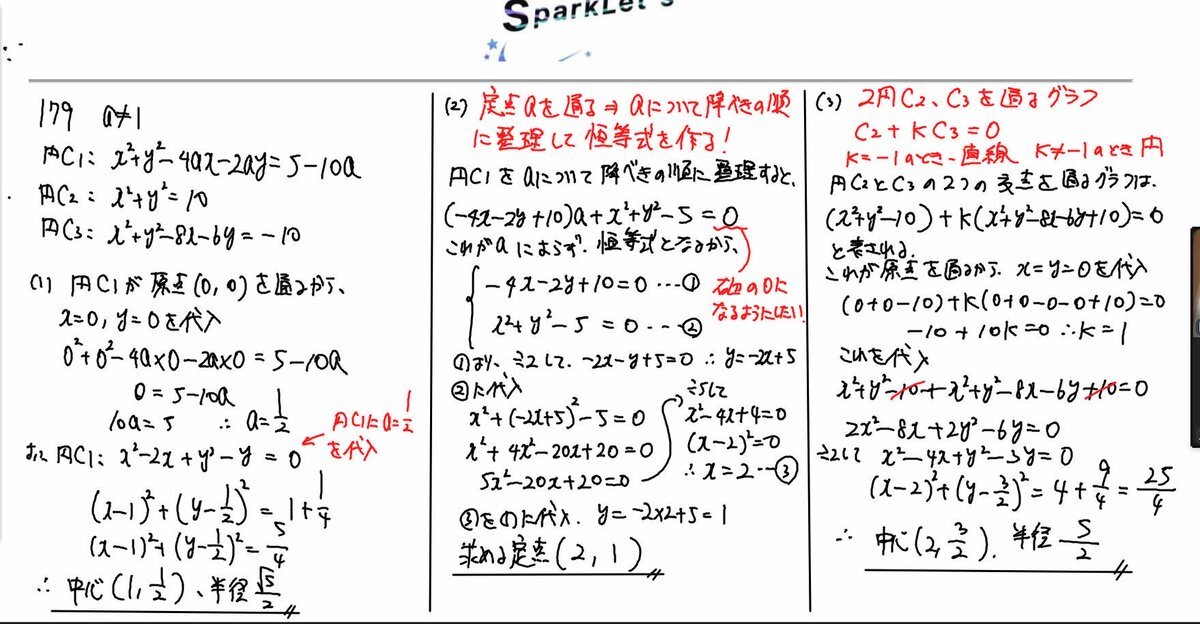 SparkLet's
179 a≠1
円C1: x²+y²-4ax-2ay=5-10a
円C2: x²+y²=10
円C3: x²+y²-8x-6y=-10
(1) 円C1が原点(0,0)を通るから、
x=0, y=0を代入
0²+0²-4a×0-2a×0=5-10a
0=5-10a
10a=5 ∴a=1/2
円C1にa=1/2
を代入
また円C1: x²-2x+y²-y=0
(x-1)²+(y-1/2)²=1+1/4
(x-1)²+(y-1/2)²=5/4
∴ 中心(1,1/2)、半径√5/2
(2) 定点aを通る⇒aについて降べきの順
に整理して恒等式を作る!
円C1をaについて降べきの順に整理すると、
(-4x-2y+10)a+x²+y²-5=0
これがaによらず、恒等式となるから、
-4x-2y+10=0 …①
x²+y²-5=0 …②
右辺の0に
なるようにしたい!
①より、÷2して、-2x-y+5=0 ∴y=-2x+5
②に代入
x²+(-2x+5)²-5=0
x²+4x²-20x+20=0
5x²-20x+20=0
÷5して
x²-4x+4=0
(x-2)²=0
∴x=2 …③
③を①に代入、y=-2×2+5=1
求める定点(2,1)
(3) 2円C2、C3を通るグラフ
C2+kC3=0
k=-1のとき…直線 k≠-1のとき円
円C2とC3の2つの交点を通るグラフは、
(x²+y²-10)+k(x²+y²-8x-6y+10)=0
と表される。
これが原点を通るから、x=y=0を代入
(0+0-10)+k(0+0-0-0+10)=0
-10+10k=0 ∴k=1
これを代入
x²+y²-10+x²+y²-8x-6y+10=0
2x²-8x+2y²-6y=0
÷2して x²-4x+y²-3y=0
(x-2)²+(y-3/2)²=4+9/4=25/4
∴ 中心(2,3/2)、半径5/2